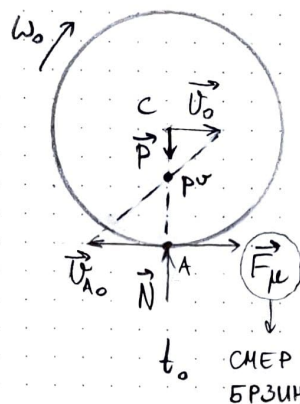 ω₀
C
v⃗₀
P⃗
Pv
v⃗_A₀
A
F⃗_μ
N⃗
t₀
СМЕР
БРЗИН